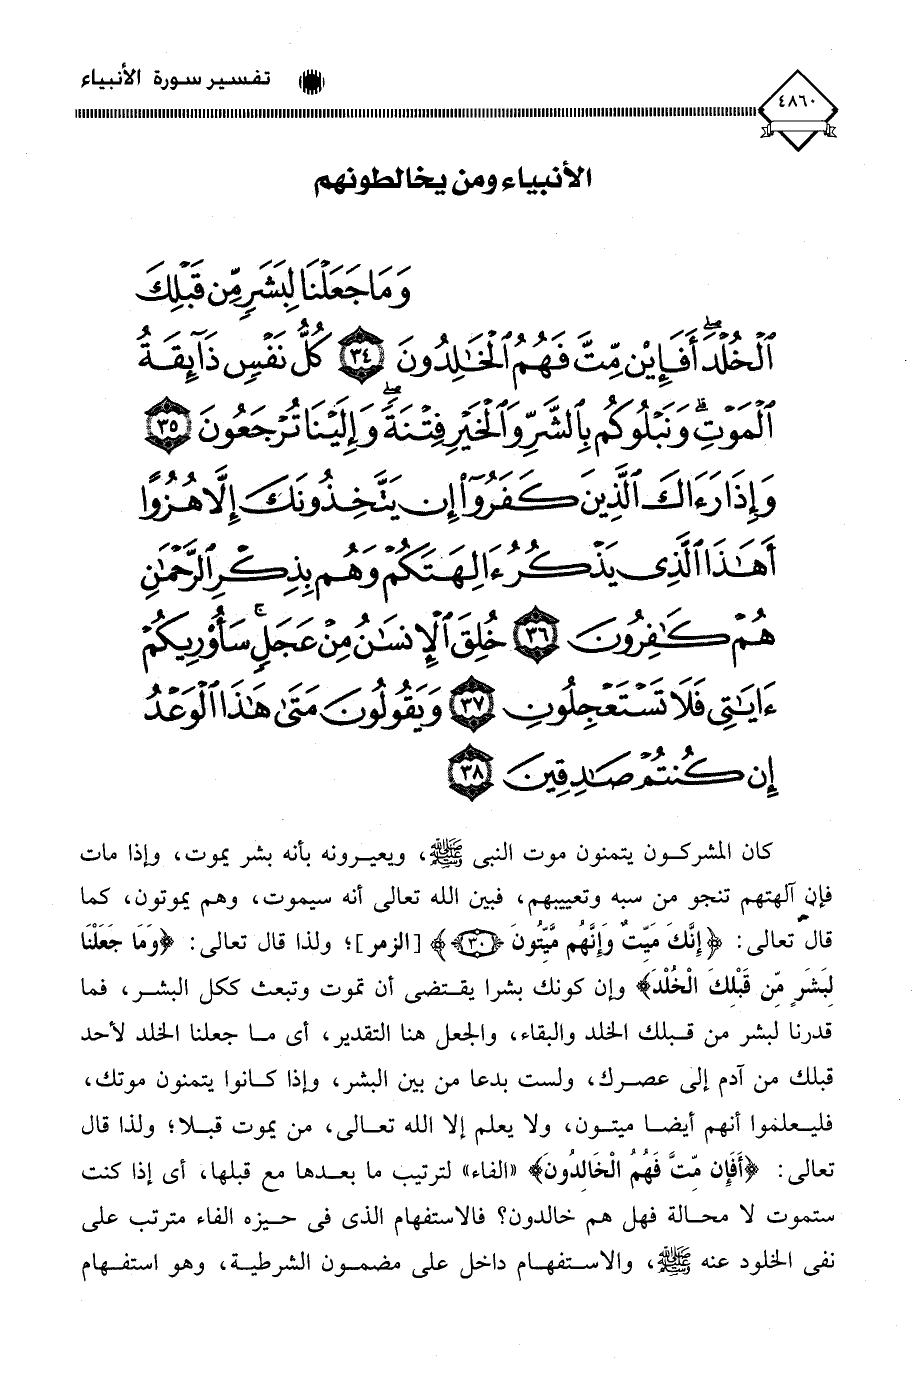 ٤٨٦٠
تفسير سورة الأنبياء
الأنبياء ومن يخالطونهم
وَمَا جَعَلْنَا لِبَشَرٍ مِّن قَبْلِكَ
ٱلْخُلْدَ ۖ أَفَإِيْن مِّتَّ فَهُمُ ٱلْخَٰلِدُونَ ٣٤ كُلُّ نَفْسٍ ذَآئِقَةُ
ٱلْمَوْتِ ۗ وَنَبْلُوكُم بِٱلشَّرِّ وَٱلْخَيْرِ فِتْنَةً ۖ وَإِلَيْنَا تُرْجَعُونَ ٣٥
وَإِذَا رَءَاكَ ٱلَّذِينَ كَفَرُوٓا۟ إِن يَتَّخِذُونَكَ إِلَّا هُزُوًا
أَهَٰذَا ٱلَّذِى يَذْكُرُ ءَالِهَتَكُمْ وَهُم بِذِكْرِ ٱلرَّحْمَٰنِ
هُمْ كَٰفِرُونَ ٣٦ خُلِقَ ٱلْإِنسَٰنُ مِنْ عَجَلٍ ۚ سَأُو۟رِيكُمْ
ءَايَٰتِى فَلَا تَسْتَعْجِلُونِ ٣٧ وَيَقُولُونَ مَتَىٰ هَٰذَا ٱلْوَعْدُ
إِن كُنتُمْ صَٰدِقِينَ ٣٨
كان المشركون يتمنون موت النبى ﷺ، ويعيرونه بأنه بشر يموت، وإذا مات
فإن آلهتهم تنجو من سبه وتعييبهم، فبين الله تعالى أنه سيموت، وهم يموتون، كما
قال تعالى: ﴿إِنَّكَ مَيِّتٌ وَإِنَّهُم مَّيِّتُونَ ﴿٣٠﴾﴾ [الزمر]؛ ولذا قال تعالى: ﴿وَمَا جَعَلْنَا
لِبَشَرٍ مِّن قَبْلِكَ الْخُلْدَ﴾ وإن كونك بشرا يقتضى أن تموت وتبعث ككل البشر، فما
قدرنا لبشر من قبلك الخلد والبقاء، والجعل هنا التقدير، أى ما جعلنا الخلد لأحد
قبلك من آدم إلى عصرك، ولست بدعا من بين البشر، وإذا كانوا يتمنون موتك،
فليعلموا أنهم أيضا ميتون، ولا يعلم إلا الله تعالى، من يموت قبلا؛ ولذا قال
تعالى: ﴿أَفَإِن مِّتَّ فَهُمُ الْخَالِدُونَ﴾ «الفاء» لترتيب ما بعدها مع قبلها، أى إذا كنت
ستموت لا محالة فهل هم خالدون؟ فالاستفهام الذى فى حيزه الفاء مترتب على
نفى الخلود عنه ﷺ، والاستفهام داخل على مضمون الشرطية، وهو استفهام